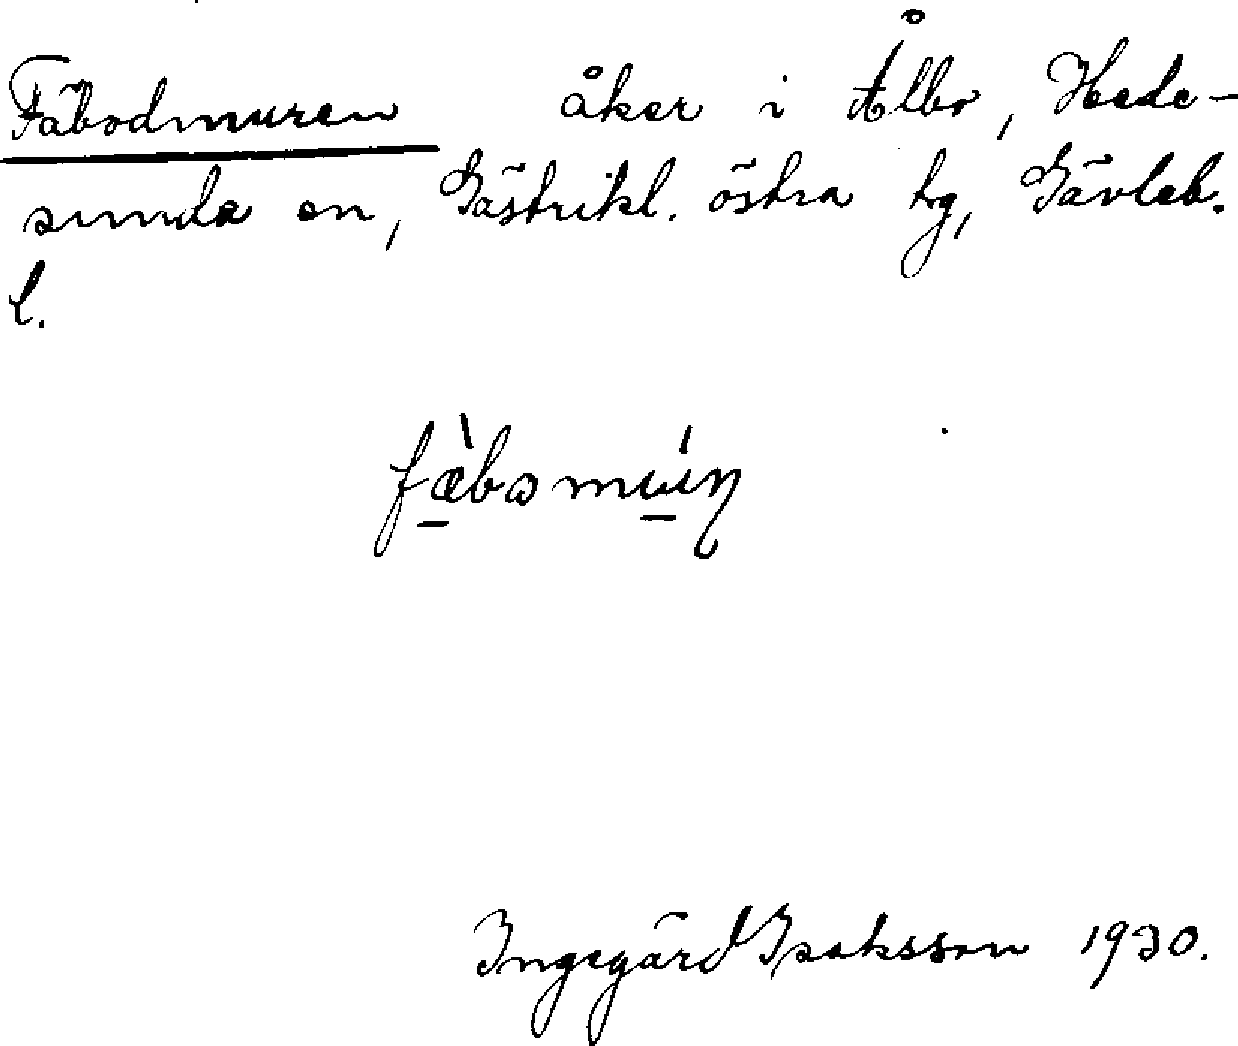 Fäbodmuren åker i Ålbo, Hede-
sunda sn, Gästrikl. östra tg, Gävleb.
l.
fæ̠̀bomú̠rn̥
Ingegärd Isaksson 1930.